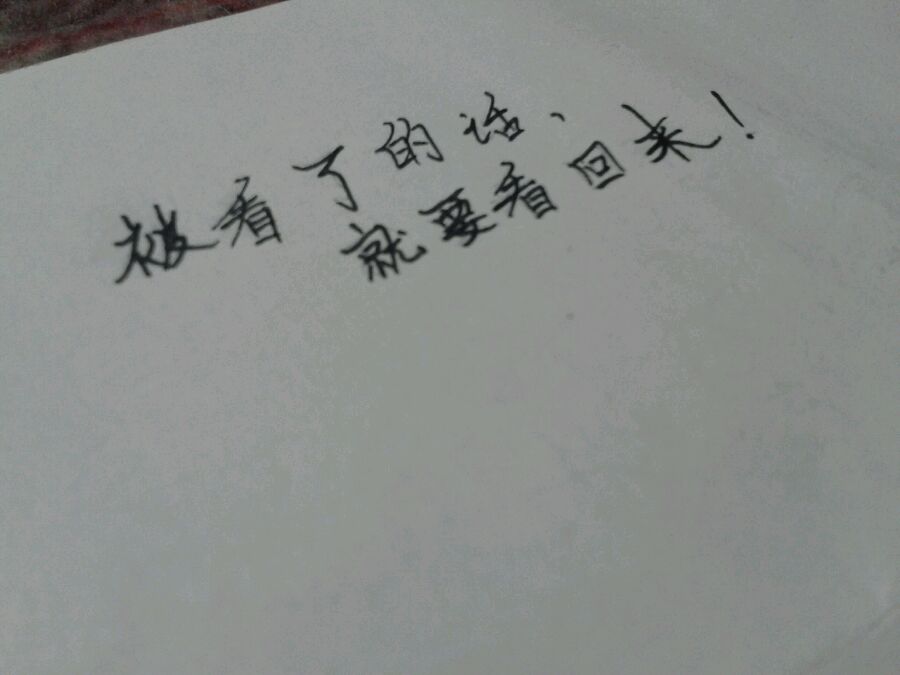 被看了的话、
就要看回来!